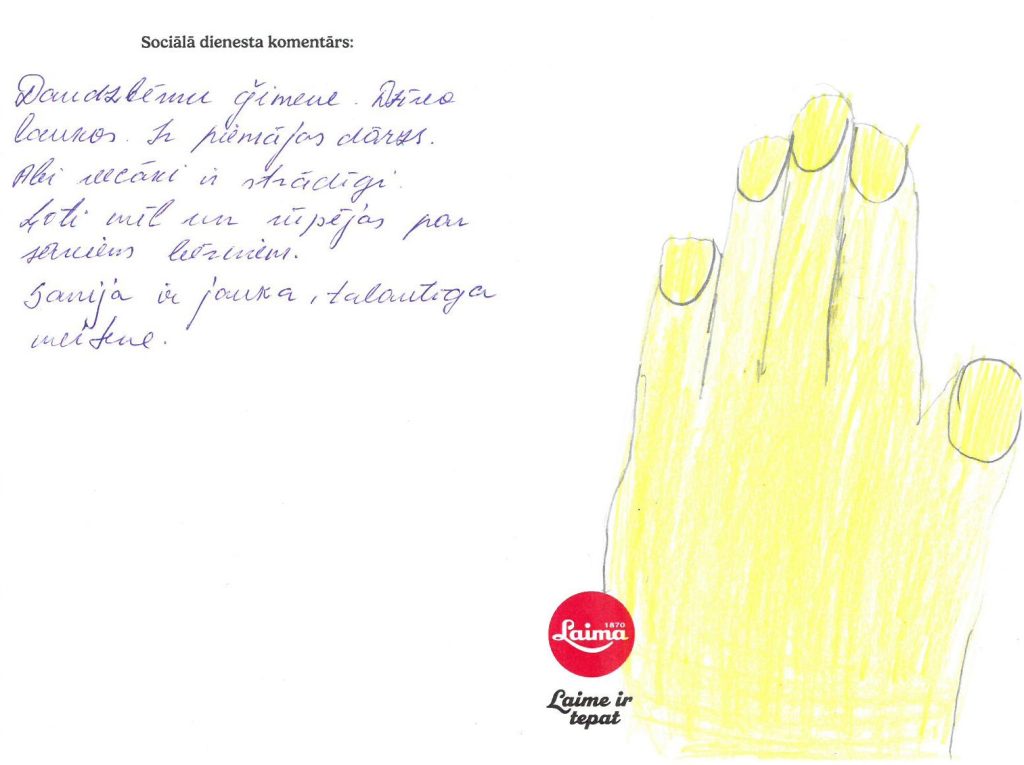 Sociālā dienesta komentārs:
Daudzbērnu ģimene. Dzīvo
laukos. Ir piemājas dārzs.
Abi vecāki ir strādīgi.
Ļoti mīl un rūpējas par
saviem bērniem.
Sanija ir jauka, talantīga
meitene.
1870
Laima
Laime ir
tepat